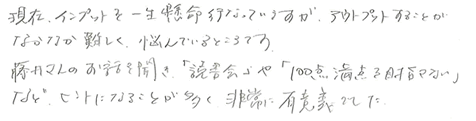 現在、インプットを一生懸命行なっていますが、アウトプットすることが
なかなか難しく、悩んでいるところです。
藤井さんのお話を聞き、「読書会」や「100点満点を目指さない」
など、ヒントになることが多く、非常に有意義でした。